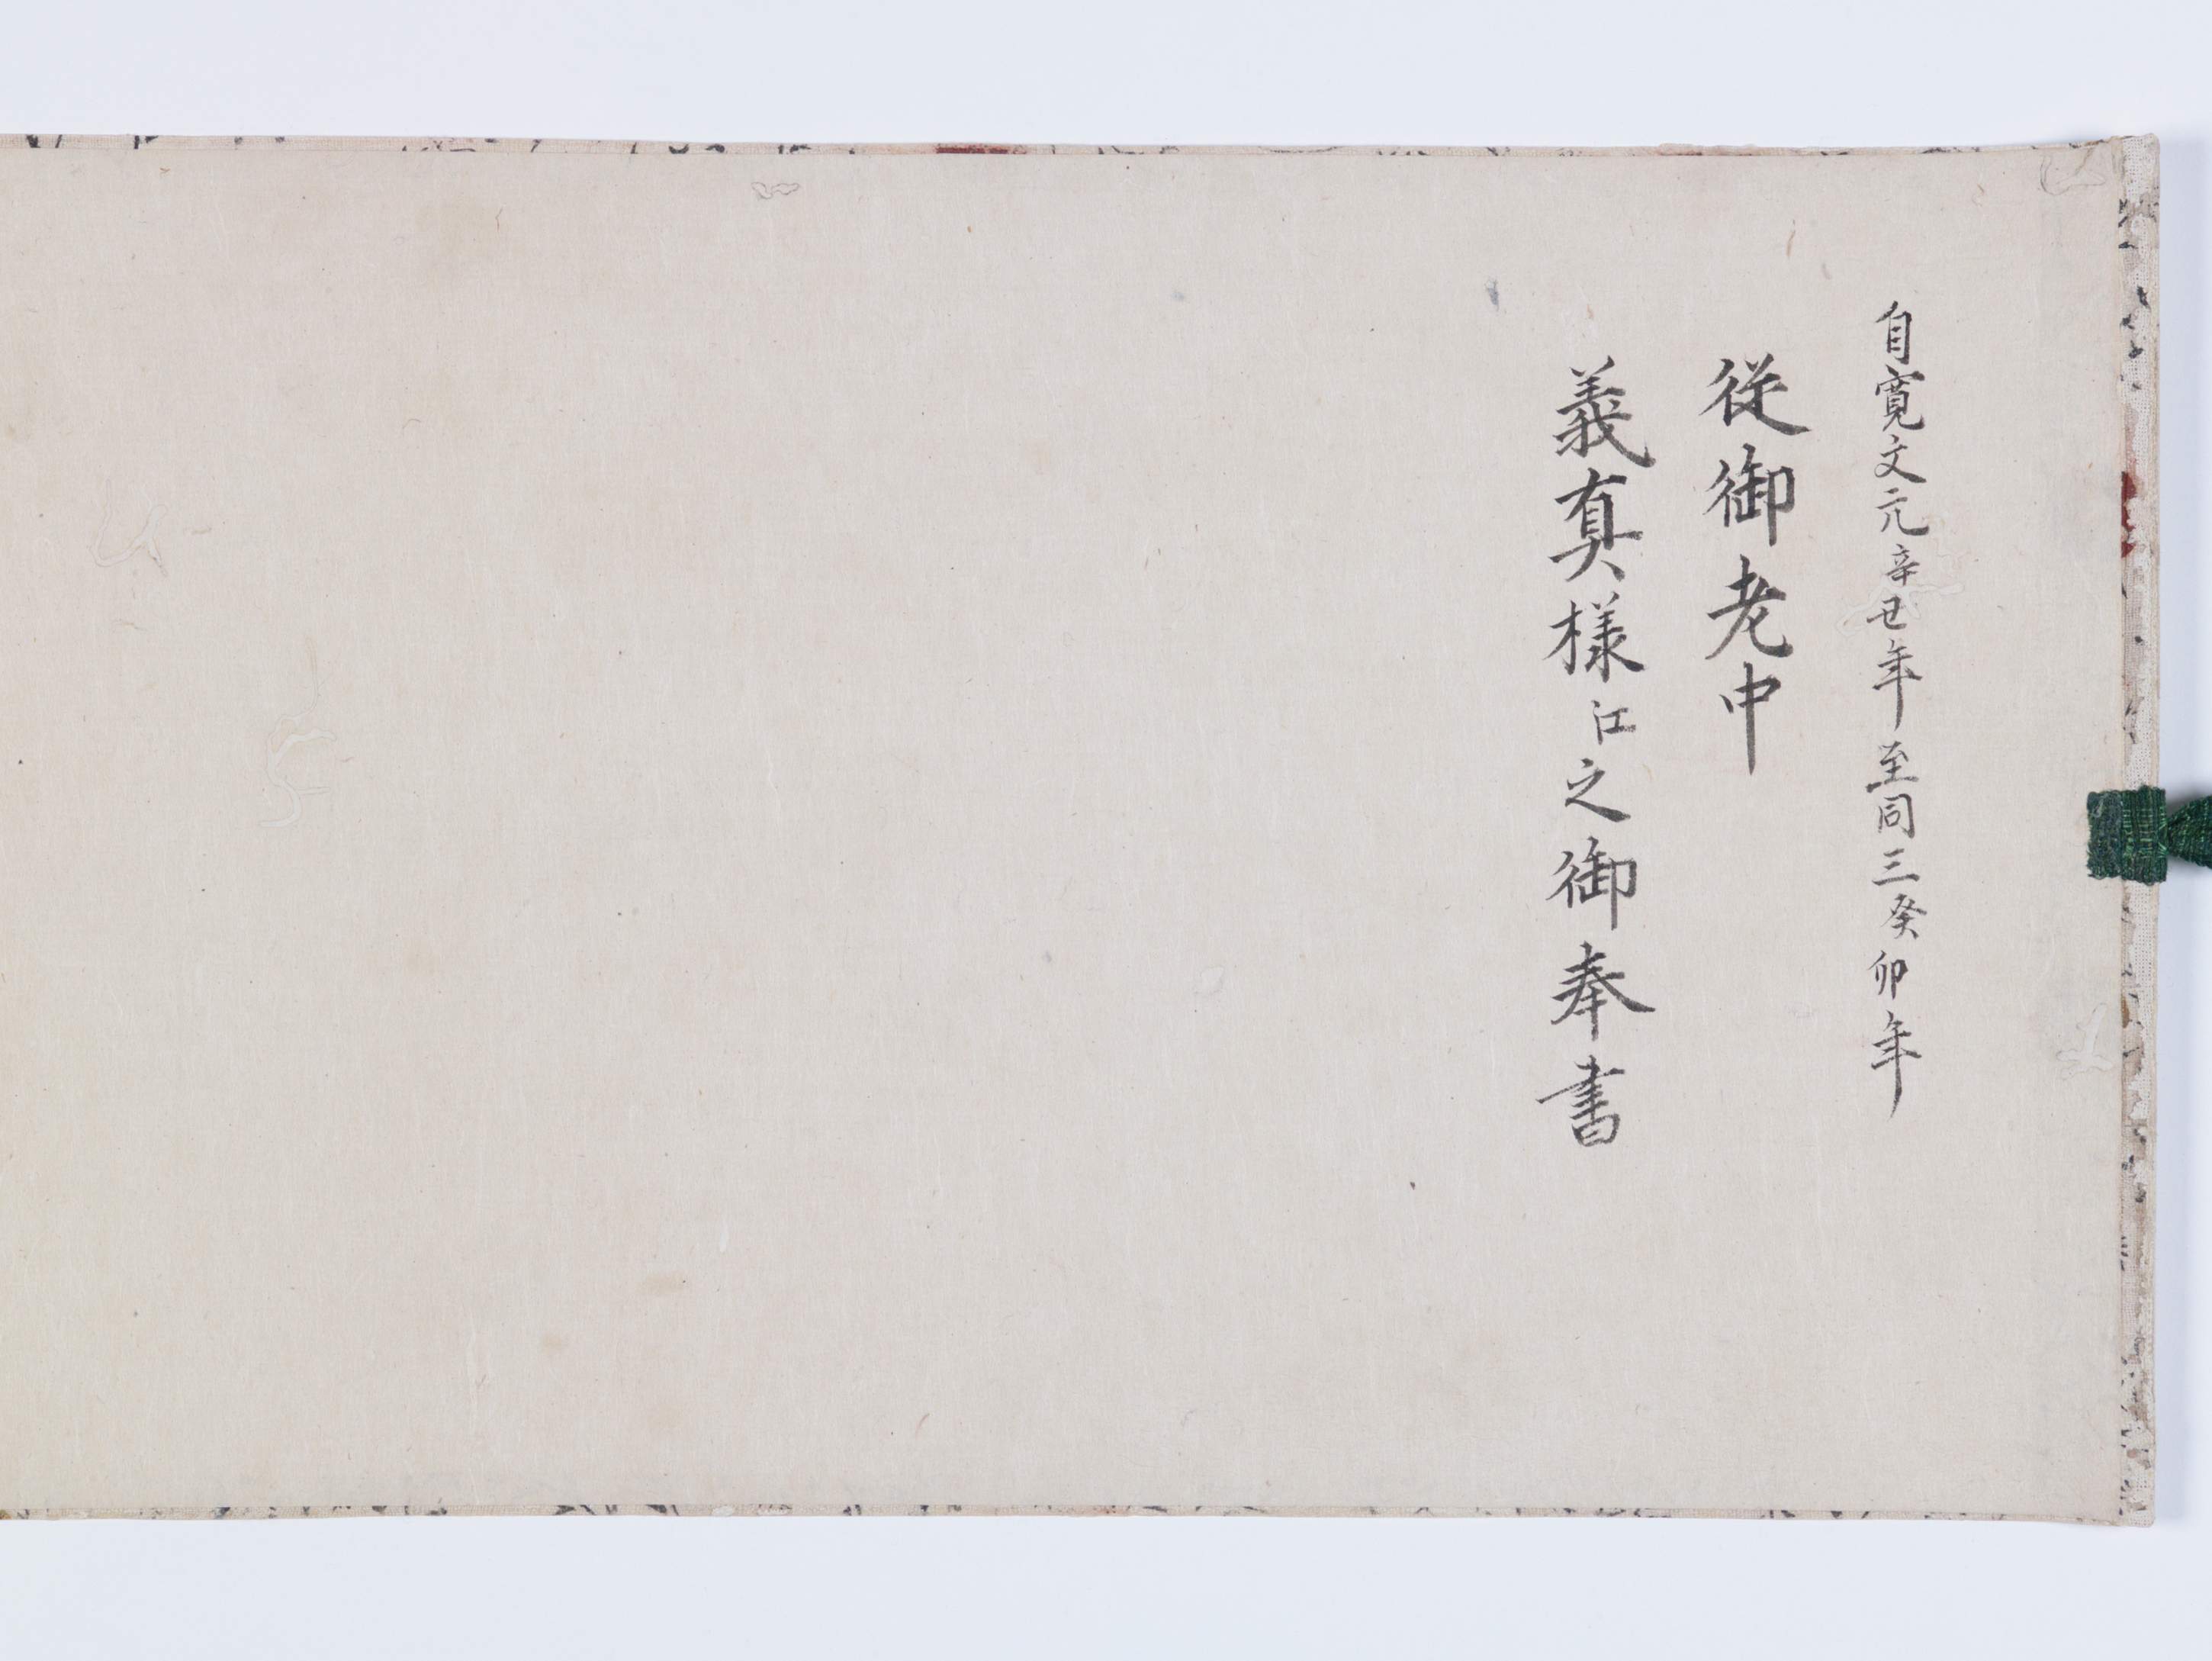 自寛文元辛丑年至同三癸卯年
従御老中
義真様江之御奉書